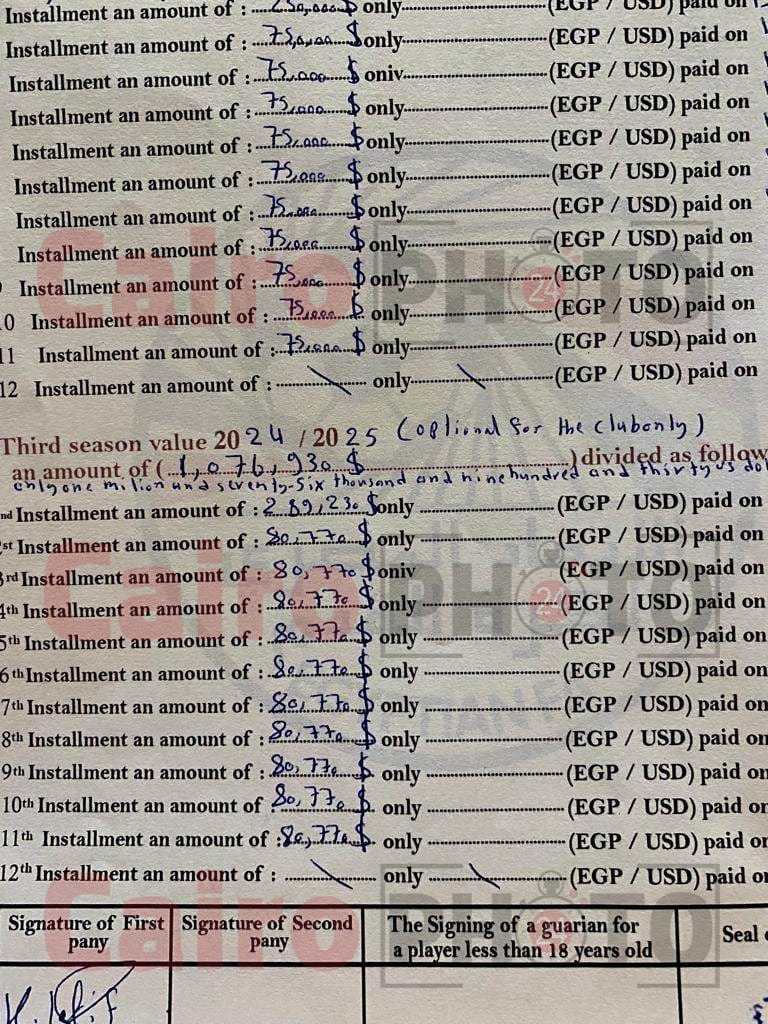 Installment an amount of : 250,000 $ only (EGP / USD) paid on
Installment an amount of : 75,000 $ only (EGP / USD) paid on
Installment an amount of : 75,000 $ oniv (EGP / USD) paid on
Installment an amount of : 75,000 $ only (EGP / USD) paid on
Installment an amount of : 75,000 $ only (EGP / USD) paid on
Installment an amount of : 75,000 $ only (EGP / USD) paid on
Installment an amount of : 75,000 $ only (EGP / USD) paid on
Installment an amount of : 75,000 $ only (EGP / USD) paid on
Installment an amount of : 75,000 $ only (EGP / USD) paid on
10 Installment an amount of : 75,000 $ only (EGP / USD) paid on
11 Installment an amount of : 75,000 $ only (EGP / USD) paid on
12 Installment an amount of : \ only \ (EGP / USD) paid on
Third season value 2024 / 2025 (optional for the club only)
an amount of ( 1,076,930 $ ) divided as follow
only one milion and seventy-six thousand and nine hundred and thirty us dol
nd Installment an amount of : 289,230 $ only (EGP / USD) paid on
st Installment an amount of : 80,770 $ only (EGP / USD) paid on
3rd Installment an amount of : 80,770 $ oniv (EGP / USD) paid on
4th Installment an amount of : 80,770 $ only (EGP / USD) paid on
5th Installment an amount of : 80,770 $ only (EGP / USD) paid on
6th Installment an amount of : 80,770 $ only (EGP / USD) paid on
7th Installment an amount of : 80,770 $ only (EGP / USD) paid on
8th Installment an amount of : 80,770 $ only (EGP / USD) paid on
9th Installment an amount of : 80,770 $ only (EGP / USD) paid on
10th Installment an amount of 80,770 $ only (EGP / USD) paid on
11th Installment an amount of : 80,770 $ only (EGP / USD) paid on
12th Installment an amount of : \ only \ (EGP / USD) paid on
Signature of First pany
Signature of Second pany
The Signing of a guarian for
a player less than 18 years old
Seal
Cairo PHOTO 24
Cairo PHOTO 24
Cairo PHOTO